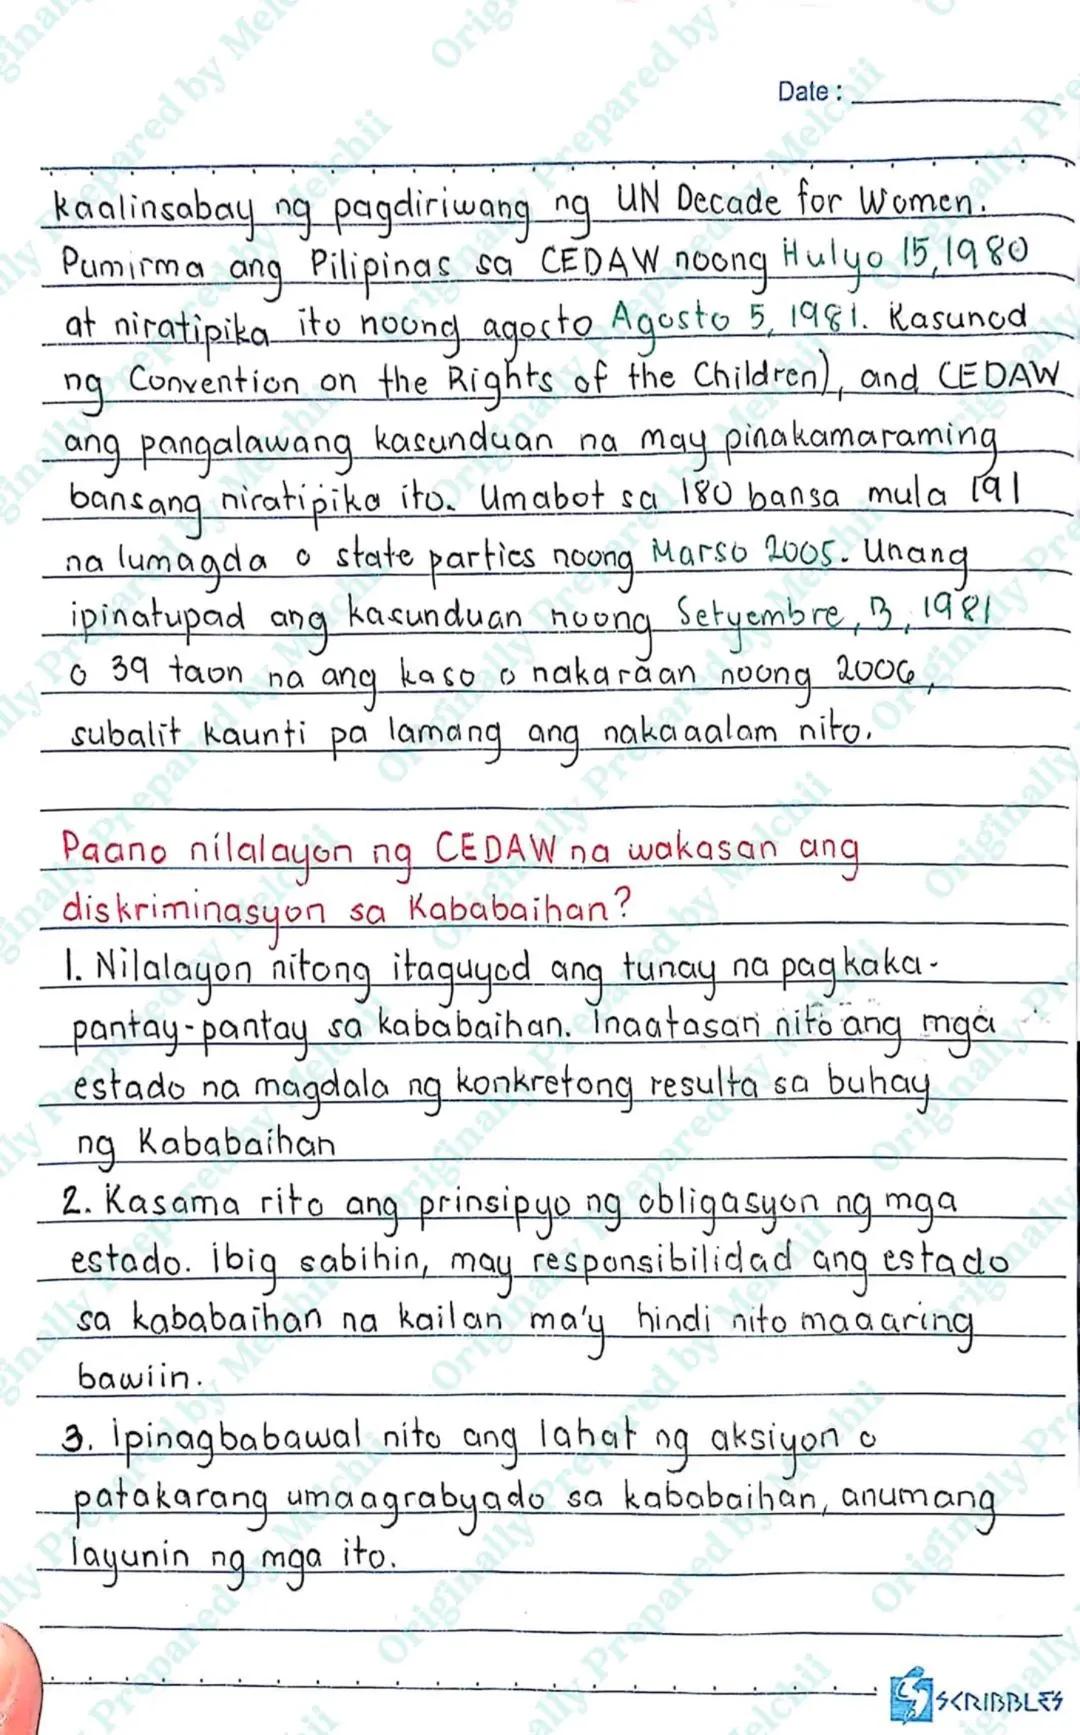 Date :
kaalinsabay ng pagdiriwang ng UN Decade for Women.
Pumirma ang Pilipinas sa CEDAW noong Hulyo 15, 1980
at niratipika ito noong agosto Agosto 5, 1981. Kasunod
ng Convention on the Rights of the Children), and CEDAW
ang pangalawang kasunduan na may pinakamaraming
bansang niratipika ito. Umabot sa 180 bansa mula 191
na lumagda o state parties noong Marso 2005. Unang
ipinatupad ang kasunduan noong Setyembre, 3, 1981
o 39 taon na ang kaso o nakaraan noong 2006,
subalit kaunti pa lamang ang nakaaalam nito.
Paano nilalayon ng CEDAW na wakasan ang
diskriminasyon sa Kababaihan?
1. Nilalayon nitong itaguyod ang tunay na pagkaka-
pantay-pantay sa kababaihan. Inaatasan nito ang mga
estado na magdala ng konkretong resulta sa buhay
ng Kababaihan
2. Kasama rito ang prinsipyo ng obligasyon ng mga
estado. ibig sabihin, may responsibilidad ang estado
sa kababaihan na kailan ma'y hindi nito maaaring
bawiin.
3. ipinagbabawal nito ang lahat ng aksiyon o
patakarang umaagrabyado sa kababaihan, anumang
layunin ng mga ito.
SCRIBBLES
Originally Prepared by Melchii